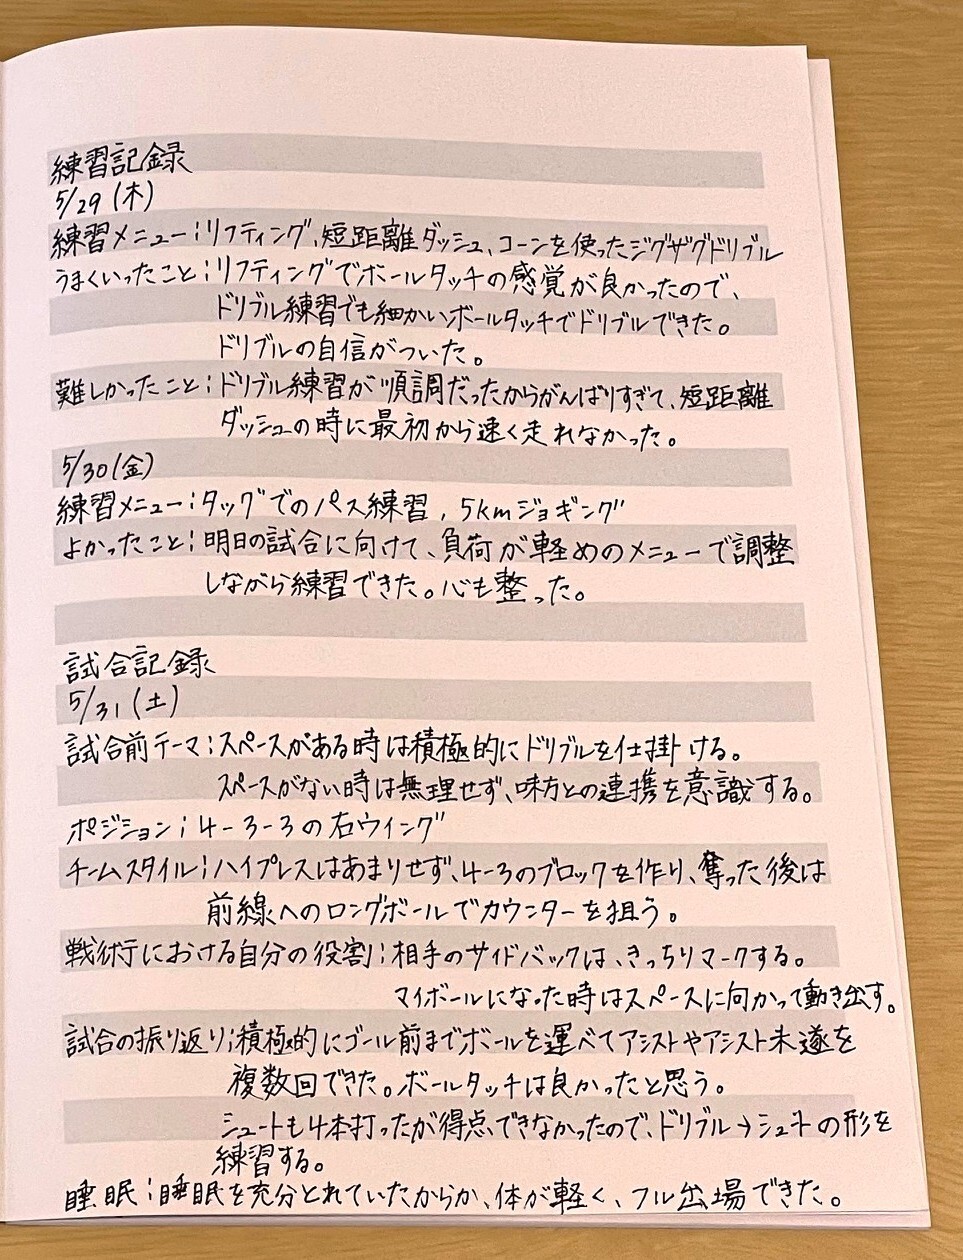 練習記録
5/29(木)
練習メニュー:リフティング、短距離ダッシュ、コーンを使ったジグザグドリブル
うまくいったこと:リフティングでボールタッチの感覚が良かったので、
ドリブル練習でも細かいボールタッチでドリブルできた。
ドリブルの自信がついた。
難しかったこと:ドリブル練習が順調だったからがんばりすぎて、短距離
ダッシュの時に最初から速く走れなかった。
5/30(金)
練習メニュー:タッグでのパス練習、5kmジョギング
よかったこと:明日の試合に向けて、負荷が軽めのメニューで調整
しながら練習できた。心も整った。
試合記録
5/31(土)
試合前テーマ:スペースがある時は積極的にドリブルを仕掛ける。
スペースがない時は無理せず、味方との連携を意識する。
ポジション:4-3-3の右ウイング
チームスタイル:ハイプレスはあまりせず、4-3のブロックを作り、奪った後は
前線へのロングボールでカウンターを狙う。
戦術における自分の役割:相手のサイドバックは、きっちりマークする。
マイボールになった時はスペースに向かって動き出す。
試合の振り返り:積極的にゴール前までボールを運べてアシストやアシスト未遂を
複数回できた。ボールタッチは良かったと思う。
シュートも4本打ったが得点できなかったので、ドリブル→シュートの形を
練習する。
睡眠:睡眠を充分とれていたからか、体が軽く、フル出場できた。